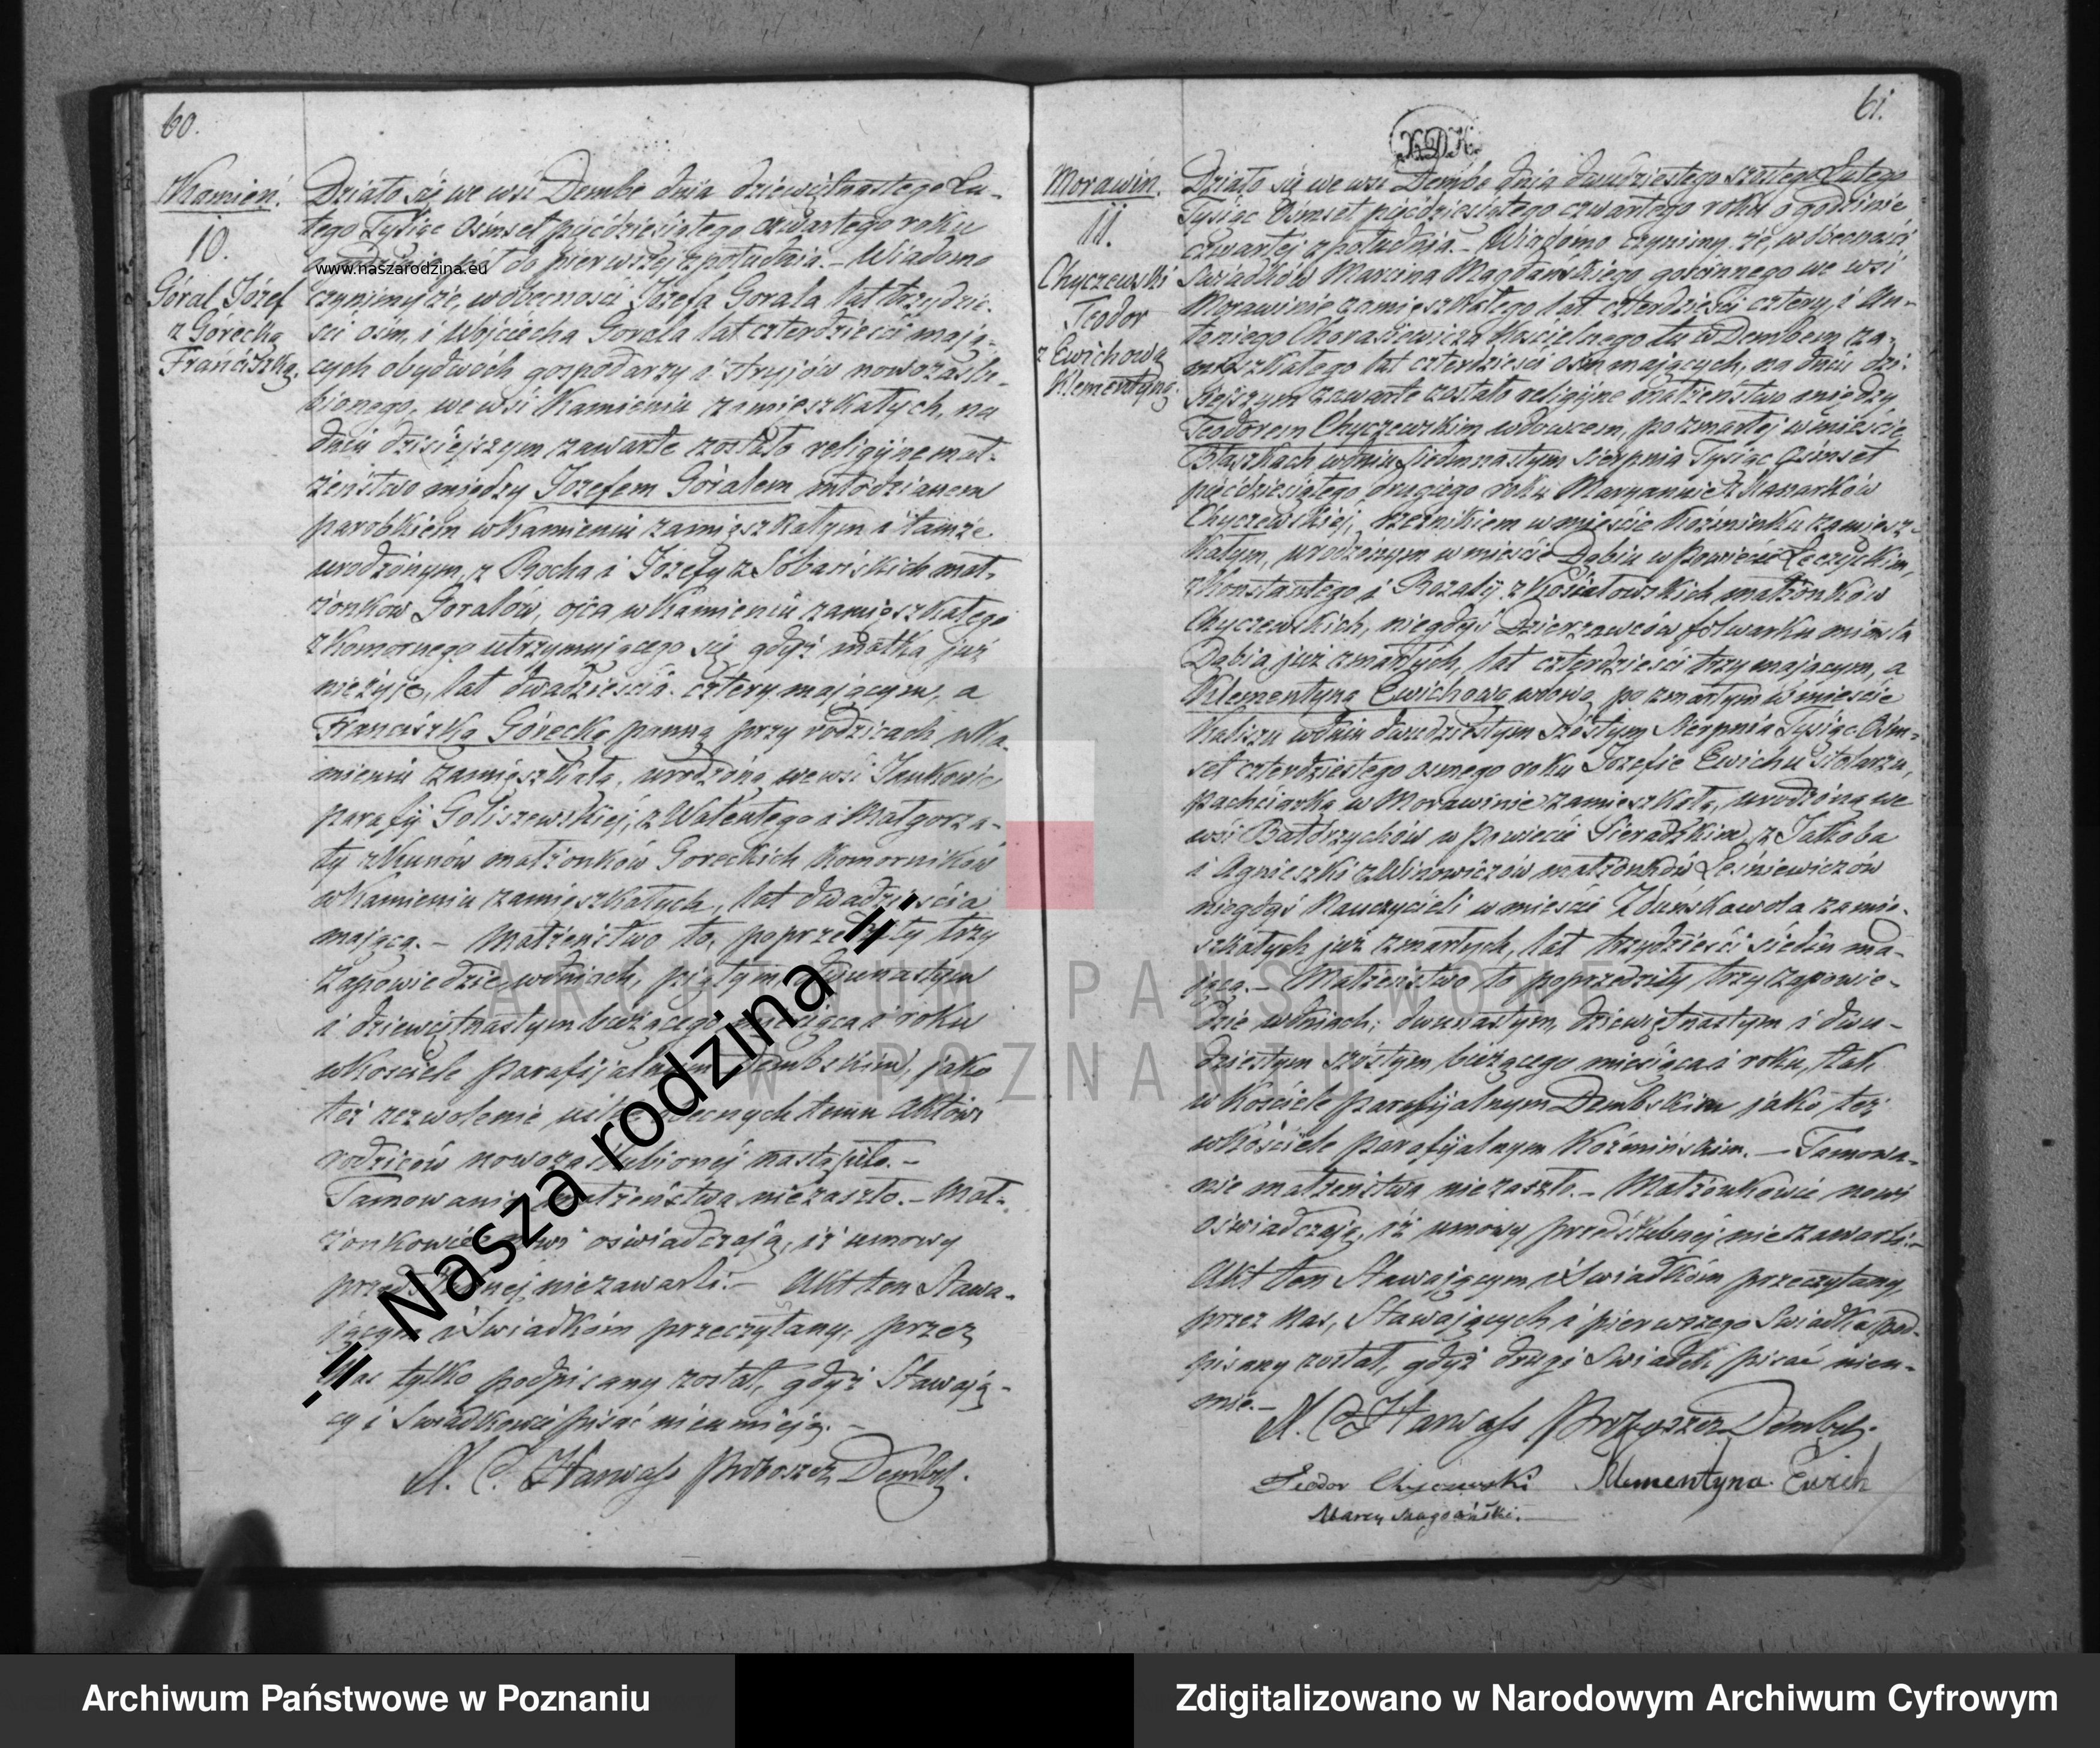 60.
Kamień.
10.
Góral Józef
z Górecką
Franciszką.
Działo się we wsi Dembe dnia dziewiętnastego Lu-
tego Tysiąc Ośmset pięćdziesiątego czwartego roku
www.naszarodzina.eu
do pierwszej z południa. – Wiadomo
czynimy że, w obecności Józefa Gorala lat trzydzie-
ści ośm, i Wojciecha Gorala lat czterdzieści mają-
cych obydwóch gospodarzy i stryjów nowozaślu-
bionego, we wsi Kamieniu zamieszkałych, na
dniu dzisiejszym zawarte zostało religijne mał-
żeństwo między Jozefem Góralem młodzianem
parobkiem w Kamieniu zamieszkałym i tamże
urodzonym, z Rocha i Józefy z Sobańskich mał-
żonków Goralów, ojca w Kamieniu zamieszkałego
z Komornego utrzymującego się gdyż matka już
nieżyje, lat dwadzieścia cztery mającym, a
Franciszką Górecką panną przy rodzicach w Ka-
mieniu zamieszkałą, urodzoną we wsi
parafij Goliszewskiej, z Walentego i Małgorza-
ty z Kunów małżonków Goreckich Komorników
w Kamieniu zamieszkałych, lat dwadzieścia
mającą. – Małżeństwo to, poprzedziły trzy
zapowiedzie w dniach, piątym, dwunastym
i dziewiętnastym bieżącego miesiąca i roku
w Kościele parafijalnym Dembskim, jako
też zezwolenie obecnych temu Aktowi
rodziców nowozaślubionej nastąpiło. –
Tamowanie małżeństwa niezaszło. – Mał-
żonkowie nowi oświadczają, iż umowy
przedślubnej niezawarli. – Akt ten Stawa-
jącym i Świadkom przeczytany, przez
Nas tylko podpisany został, gdyż Stawają-
cy i Świadkowie pisać nieumieją. –
Proboszcz Dembsk.
!!! Nasza rodzina !!!
61.
Morawin.
11.
Chyczewski
Teodor
z Ewichową
Klementyną.
Działo się we wsi Dembe dnia dwudziestego szóstego Lutego
Tysiąc Ośmset pięćdziesiątego czwartego roku o godzinie
czwartej z południa. – Wiadomo czynimy, że, w obecności
Świadków Marcina Magdańskiego gościnnego we wsi
Morawinie zamieszkałego lat czterdzieści cztery, i An-
toniego Kościelnego tu w Dembem za-
mieszkałego lat czterdzieści ośm mających, na dniu dzi-
siejszym zawarte zostało religijne małżeństwo między
Teodorem Chyczewskim wdowcem, po zmarłej w mieście
Błaszkach w dniu siedmnastym Sierpnia Tysiąc Ośmset
pięćdziesiątego drugiego roku Maryannie z
Chyczewskiej, w mieście Koźminku zamiesz-
kałym, urodzonym w mieście Dąbiu w Powiecie Łęczyckim,
z Konstantego i Rozalij z małżonków
Chyczewskich, niegdyś Dzierzawców folwarku miasta
Dąbia już zmarłych, lat czterdzieści trzy mającym, a
Klementyną Ewichową wdową po zmarłym w mieście
Kaliszu w dniu dwudziestym szóstym Sierpnia Tysiąc Ośm-
set czterdziestego osmego roku Jozefie Ewichu Stolarzu,
pachciarką w Morawinie zamieszkałą, urodzoną we
wsi w Powiecie Sieradzkim, z Jakóba
i Agnieszki z małżonków Leśniewiczów
niegdyś Nauczycieli w mieście Zduńskawola zamie-
szkałych już zmarłych, lat trzydzieści siedm ma-
jącą. – Małżeństwo to poprzedziły trzy zapowie-
dzie w dniach; dwunastym, dziewiętnastym i dwu-
dziestym szóstym bieżącego miesiąca i roku, tak
w Kościele parafijalnym Dembskim jako też
w Kościele parafijalnym Koźmińskim. – Tamowa-
nie małżeństwa niezaszło. – Małżonkowie nowi
oświadczają, iż umowy przedślubnej niezawarli. –
Akt ten Stawającym i Świadkom przeczytany,
przez Nas, Stawających i pierwszego Świadka pod-
pisany został, gdyż drugi Świadek pisać nieu-
mie. –
Proboszcz Dembsk.
Teodor Chyczewski Klementyna Ewich
Marcin Magdański. –
ARCHIWUM PAŃSTWOWE
W POZNANIU
Archiwum Państwowe w Poznaniu
Zdigitalizowano w Narodowym Archiwum Cyfrowym